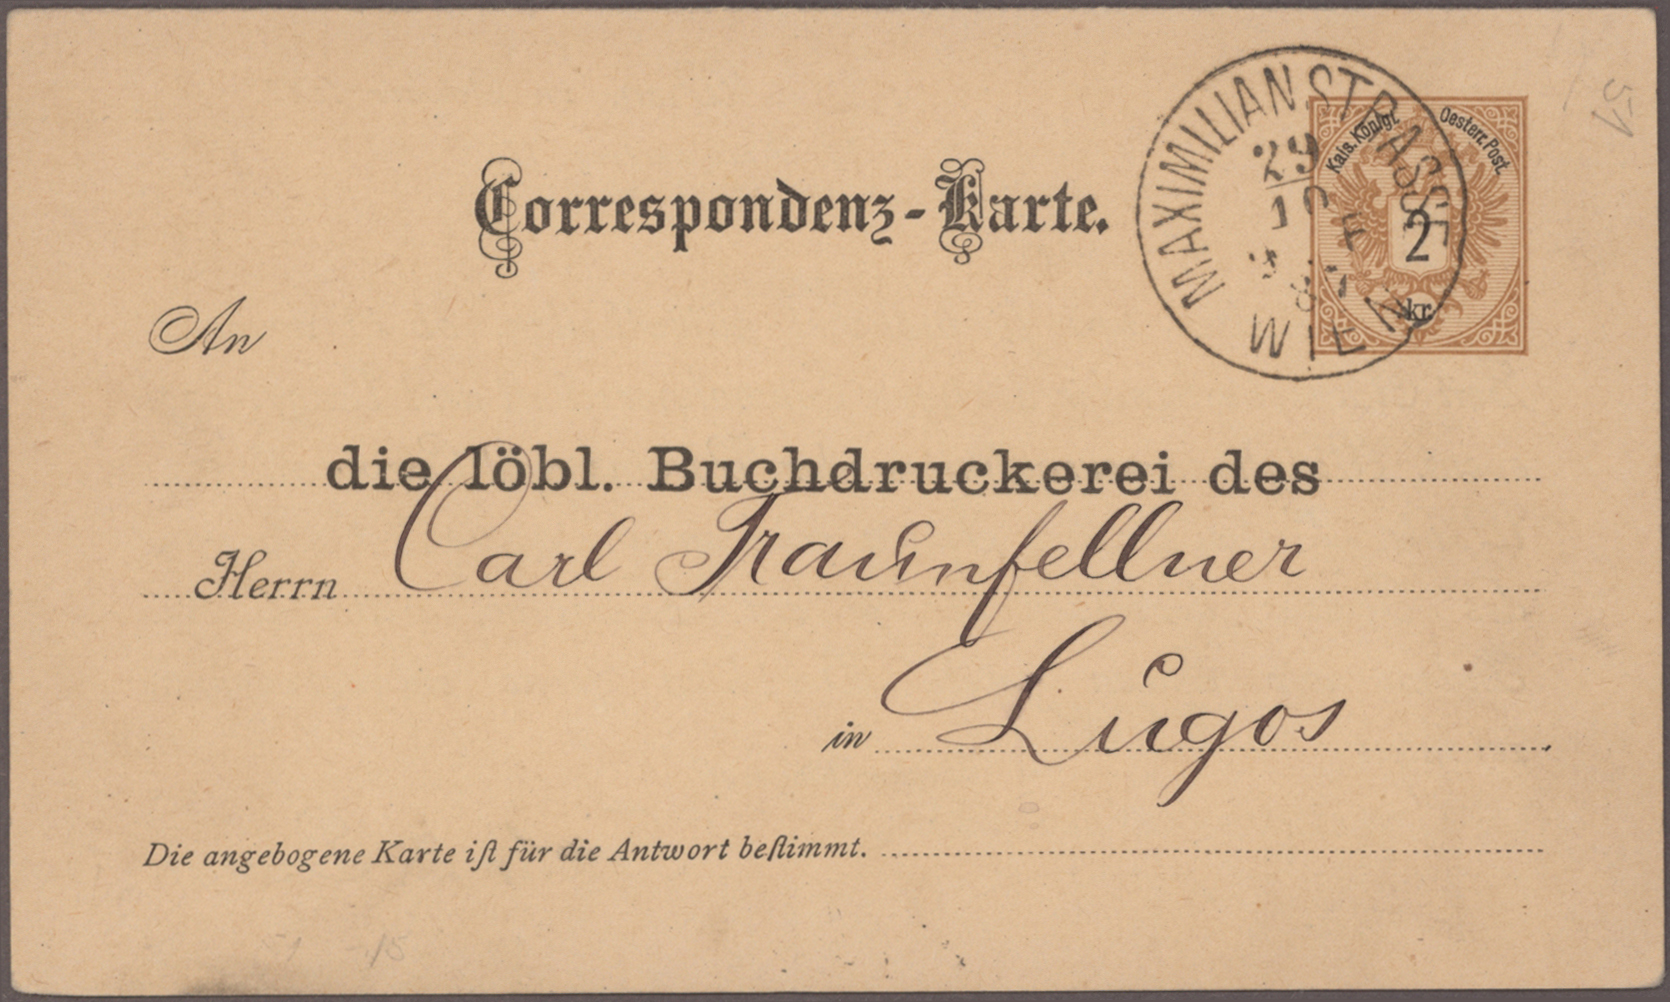 MAXIMILIANSTRASSE
29
10
WIEN
Kais. Königl. Oesterr. Post.
2
kr.
Correspondenz-Karte.
An
die löbl. Buchdruckerei des
Herrn Carl Traunfellner
in Lugos
Die angebogene Karte iſt für die Antwort beſtimmt.
51